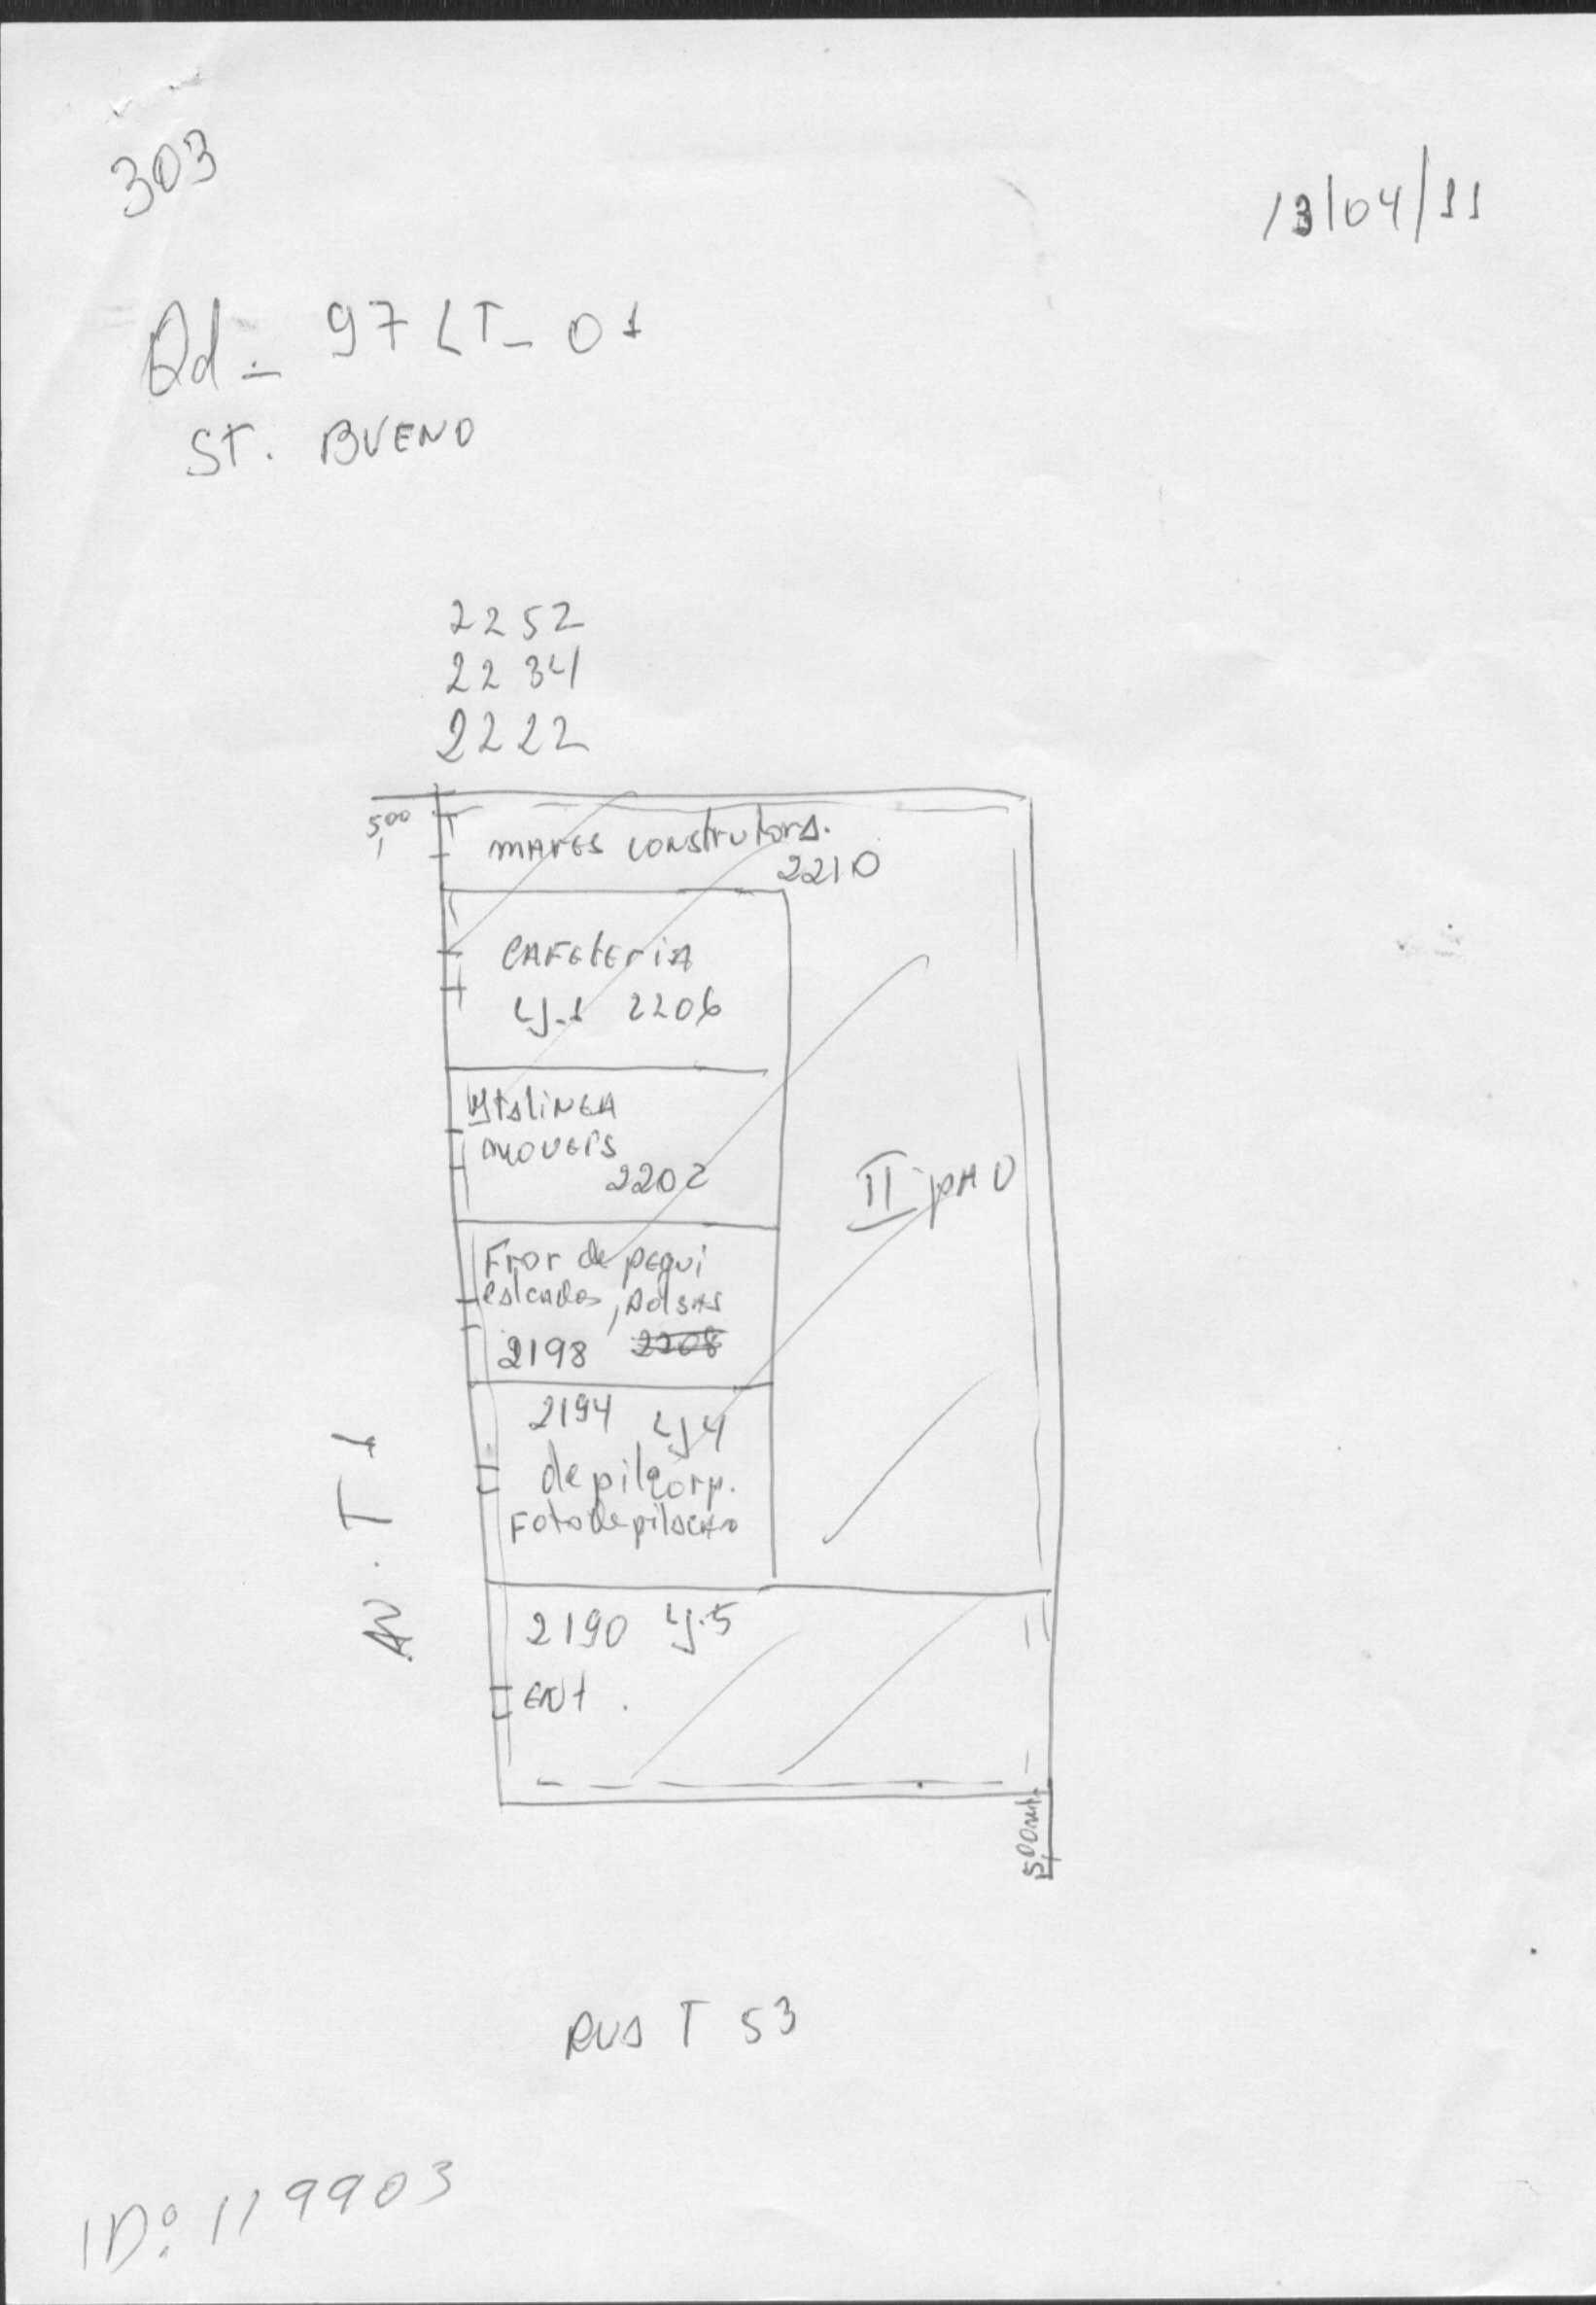 303
13/04/11
Qd - 97 LT - 01
ST. BUENO
2252
2234
2222
5,00
MARES CONSTRUTORA.
2210
CAFETERIA
LJ.1 2206
MOVEIS
2202
II PAV
Fror de pequi
CALCADOS, BOLSAS
2198 2208
2194 LJ4
depilcorp.
FOTODEPILACAO
AV. T 1
2190 LJ.5
ENT.
5,00mt.
RUA T 53
ID: 119903